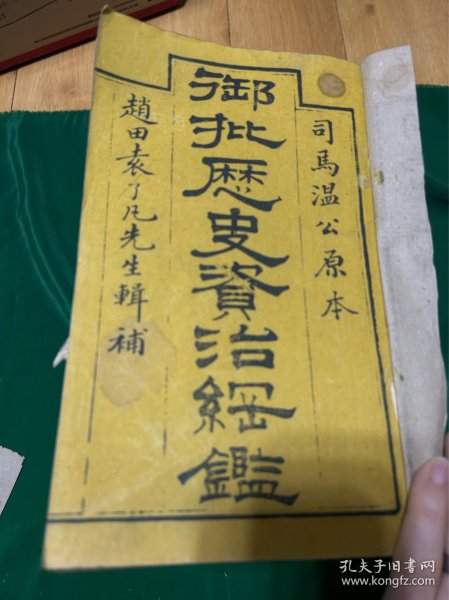 司馬溫公原本
御批歷史資治綱鑑
趙田袁了凡先生輯補
孔夫子旧书网
www.kongfz.com